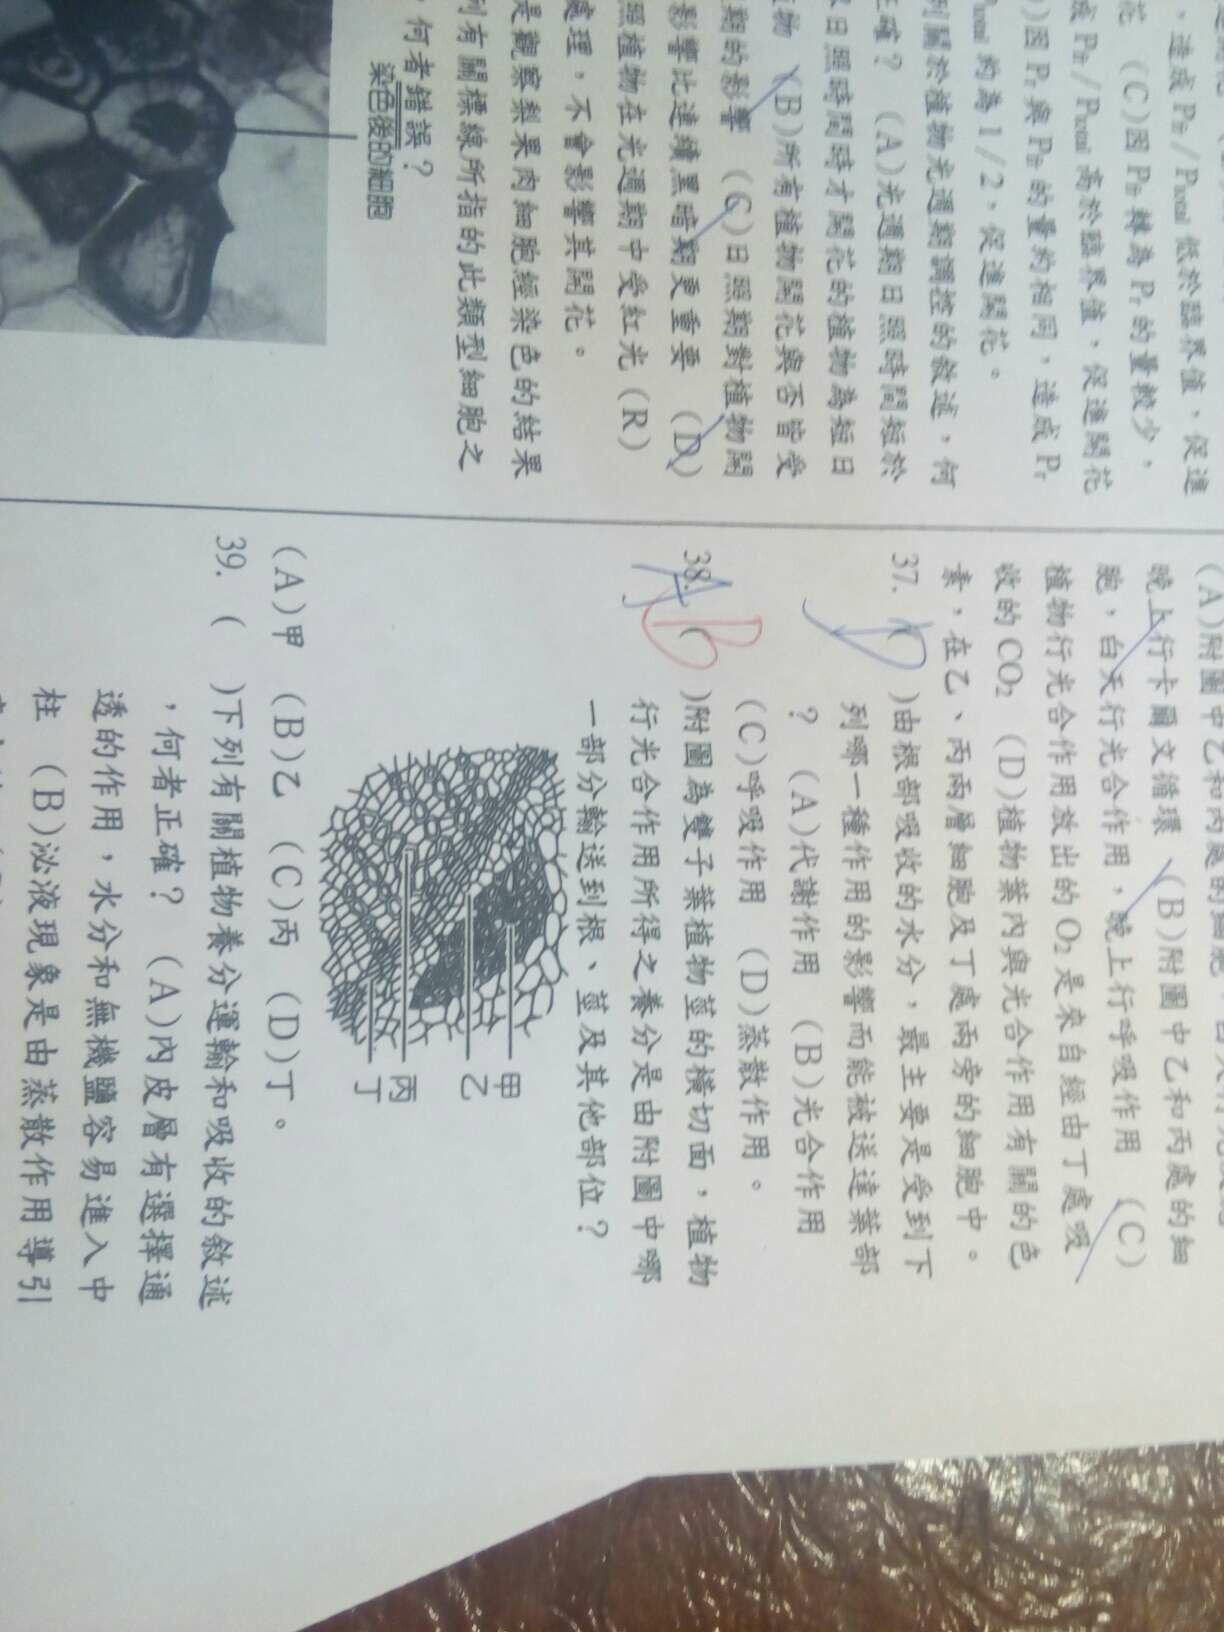 ，造成 Pfr/Ptotal 低於臨界值，促進
花 (C)因 Pfr 轉為 Pr 的量較少，
成 Pfr/Ptotal 高於臨界值，促進開花
)因 Pr 與 Pfr 的量約相同，造成 Pr
Ptotal 約為 1/2，促進開花。
列關於植物光週期調控的敘述，何
正確？ (A)光週期日照時間短於
日照時間時才開花的植物為短日
植物 (B)所有植物開花與否皆受
期的影響 (C)日照期對植物開
影響比連續黑暗期更重要 (D)
照植物在光週期中受紅光(R)
處理，不會影響其開花。
是觀察梨果肉細胞經染色的結果
列有關標線所指的此類型細胞之
，何者錯誤？
染色後的細胞
(A)附圖中乙和丙處的細胞，白天行光反應
晚上行卡爾文循環 (B)附圖中乙和丙處的細
胞，白天行光合作用，晚上行呼吸作用 (C)
植物行光合作用放出的 O2 是來自經由丁處吸
收的 CO2 (D)植物葉內與光合作用有關的色
素，在乙、丙兩層細胞及丁處兩旁的細胞中。
37. ( D )由根部吸收的水分，最主要是受到下
列哪一種作用的影響而能被送達葉部
？ (A)代謝作用 (B)光合作用
(C)呼吸作用 (D)蒸散作用。
38. ( A B )附圖為雙子葉植物莖的橫切面，植物
行光合作用所得之養分是由附圖中哪
一部分輸送到根、莖及其他部位？
甲
乙
丙
丁
(A)甲 (B)乙 (C)丙 (D)丁。
39. ( )下列有關植物養分運輸和吸收的敘述
，何者正確？ (A)內皮層有選擇通
透的作用，水分和無機鹽容易進入中
柱 (B)泌液現象是由蒸散作用導引